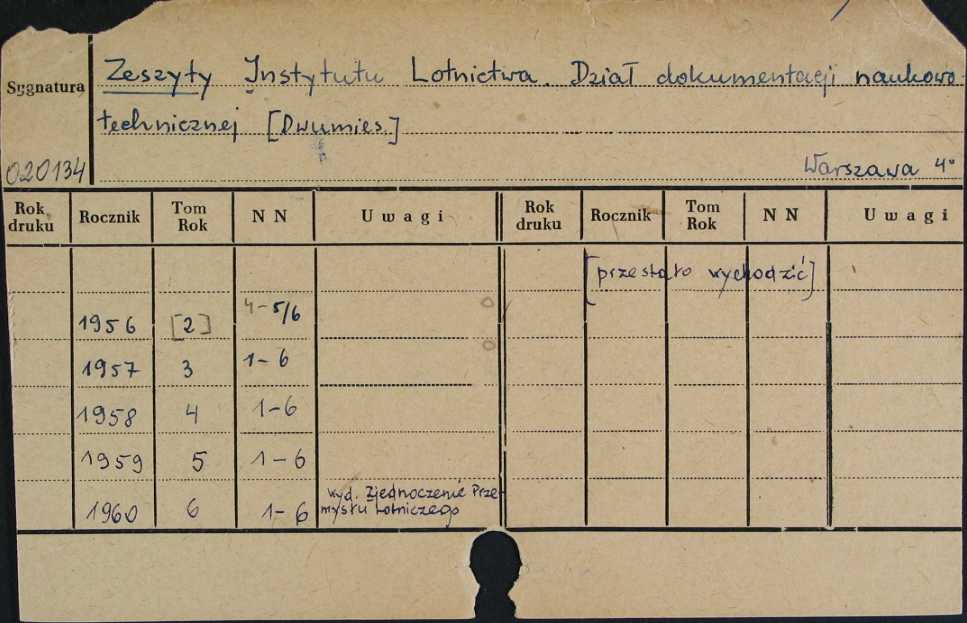 Sygnatura
020134
Zeszyty Instytutu Lotnictwa. Dział dokumentacji naukowo-
technicznej [Dwumies.]
Warszawa 4°
Rok druku Rocznik Tom Rok NN Uwagi Rok druku Rocznik Tom Rok NN Uwagi
[przestało wychodzić]
1956 [2] 4-5/6
1957 3 1-6
1958 4 1-6
1959 5 1-6
1960 6 1-6 wyd. Zjednoczenie Prze-
mysłu Lotniczego